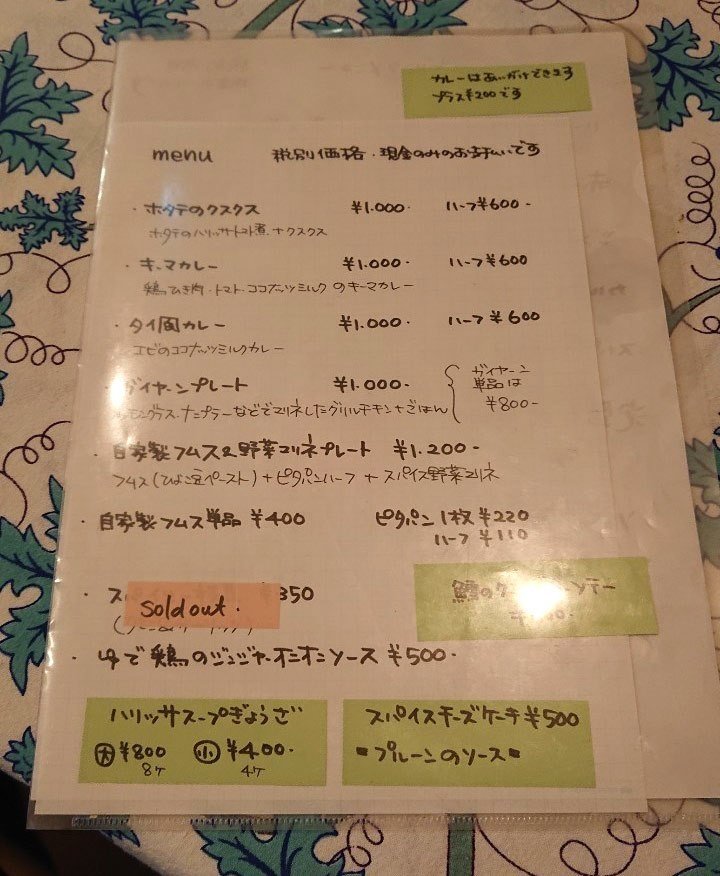 カレーはあいがけできます
プラス¥200です
menu 税別価格・現金のみのお支払いです
・ホタテのクスクス ¥1.000- ハーフ¥600-
ホタテのハリッサトマト煮+クスクス
・キーマカレー ¥1.000- ハーフ¥600
鶏ひき肉・トマト・ココナッツミルクのキーマカレー
・タイ風カレー ¥1.000- ハーフ¥600
エビのココナッツミルクカレー
ガイヤーンプレート ¥1.000-
ナンプラーなどでマリネしたグリルチキン+ごはん
ガイヤーン
単品は
¥800-
・自家製フムス&野菜マリネプレート ¥1.200-
フムス(ひよこ豆ペースト)+ピタパンハーフ+スパイス野菜マリネ
・自家製フムス単品 ¥400 ピタパン1枚¥220
ハーフ¥110
・ス 350
Sold out.
鱈の
・ゆで鶏のジンジャーオニオンソース ¥500-
ハリッサスープぎょうざ
大 ¥800 小 ¥400-
8ケ 4ケ
スパイスチーズケーキ¥500
"プルーンのソース"